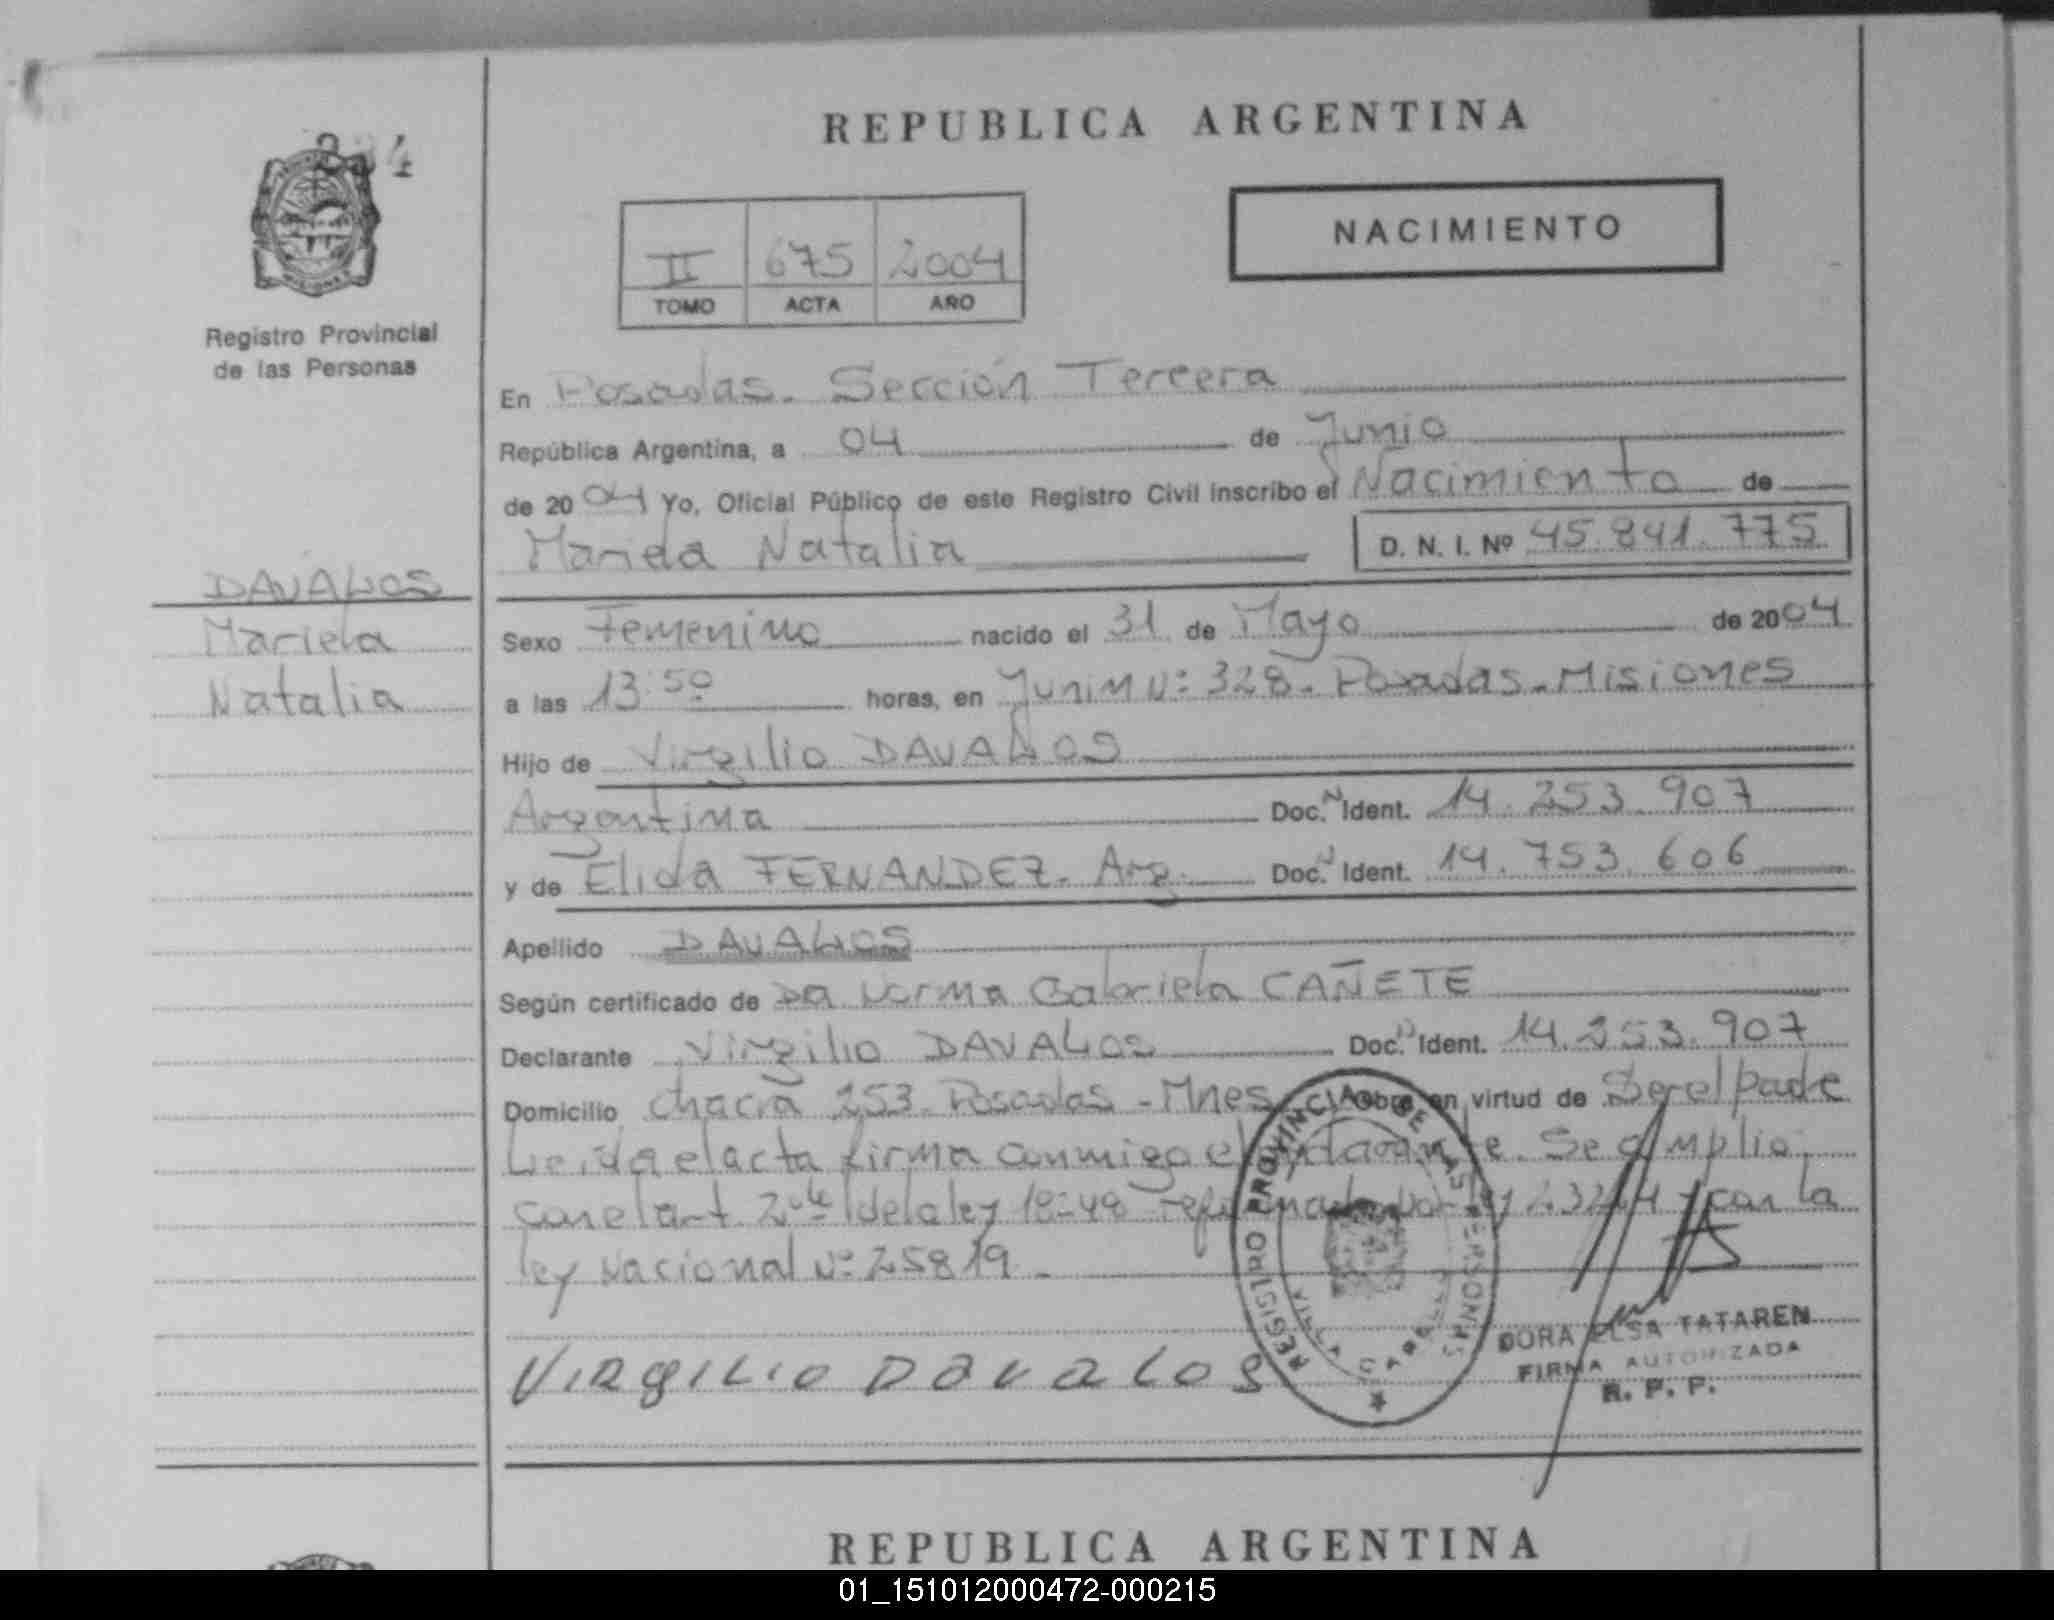 REPUBLICA ARGENTINA
NACIMIENTO
II 675 2004
TOMO ACTA AÑO
Registro Provincial
de las Personas
En Posadas. Sección Tercera
República Argentina, a 04 de Junio
de 2004 Yo, Oficial Público de este Registro Civil inscribo el Nacimiento de
Mariela Natalia D. N. I. Nº 45.841.775
DAVALOS
Mariela
Natalia
Sexo Femenino nacido el 31 de Mayo de 2004
a las 13:50 horas, en Junin Nº 328. Posadas-Misiones
Hijo de Virgilio DAVALOS
Argentina Doc. N Ident. 14.253.907
y de Elida FERNANDEZ. Arg. Doc. N Ident. 14.753.606
Apellido DAVALOS
Según certificado de Da Norma Gabriela CAÑETE
Declarante Virgilio DAVALOS Doc. N Ident. 14.253.907
Domicilio Chacra 253. Posadas - Mnes Obra en virtud de Ser el padre
Leida el acta firma conmigo el declarante. Se amplio
con el art. 2 de la ley 18248 por ley 23264 y con la
ley Nacional Nº 25819.
VIRGILIO DAVALOS
REGISTRO PROVINCIAL DE LAS PERSONAS
VILLA CABELLO
DORA ELSA TATAREN
FIRMA AUTORIZADA
R. P. P.
REPUBLICA ARGENTINA
01_151012000472-000215